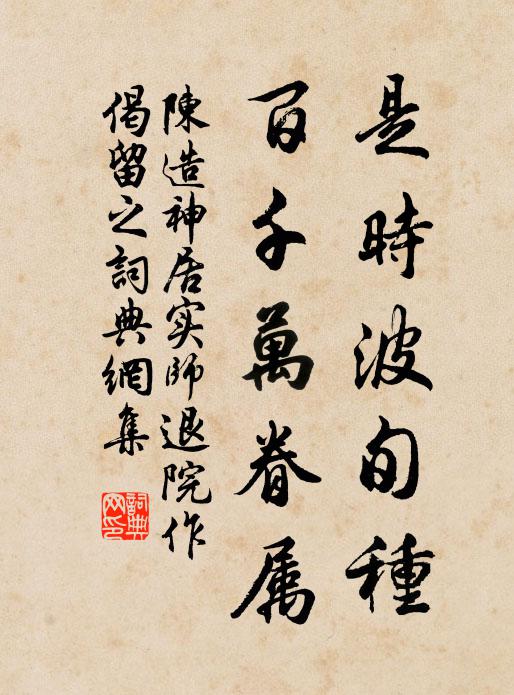 是時波旬種
百千萬眷属
陳造神居实師退院作
偈留之詞典網集
詞典網印